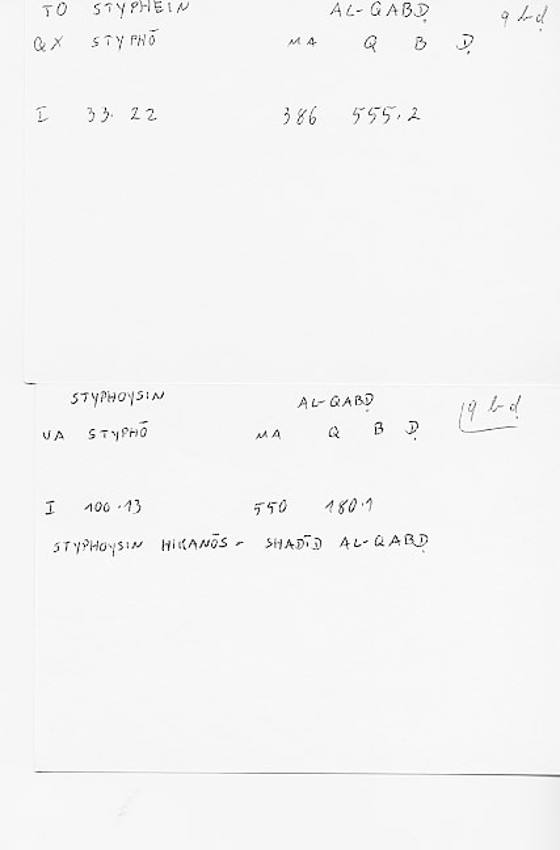 TO STYPHEIN AL-QABḌ q b ḍ
QX STYPHŌ MA Q B Ḍ
I 33.22 386 555.2
STYPHOYSIN AL-QABḌ q b ḍ
VA STYPHŌ MA Q B Ḍ
I 100.13 550 180.1
STYPHOYSIN HIKANŌS - SHADĪD AL-QABḌ